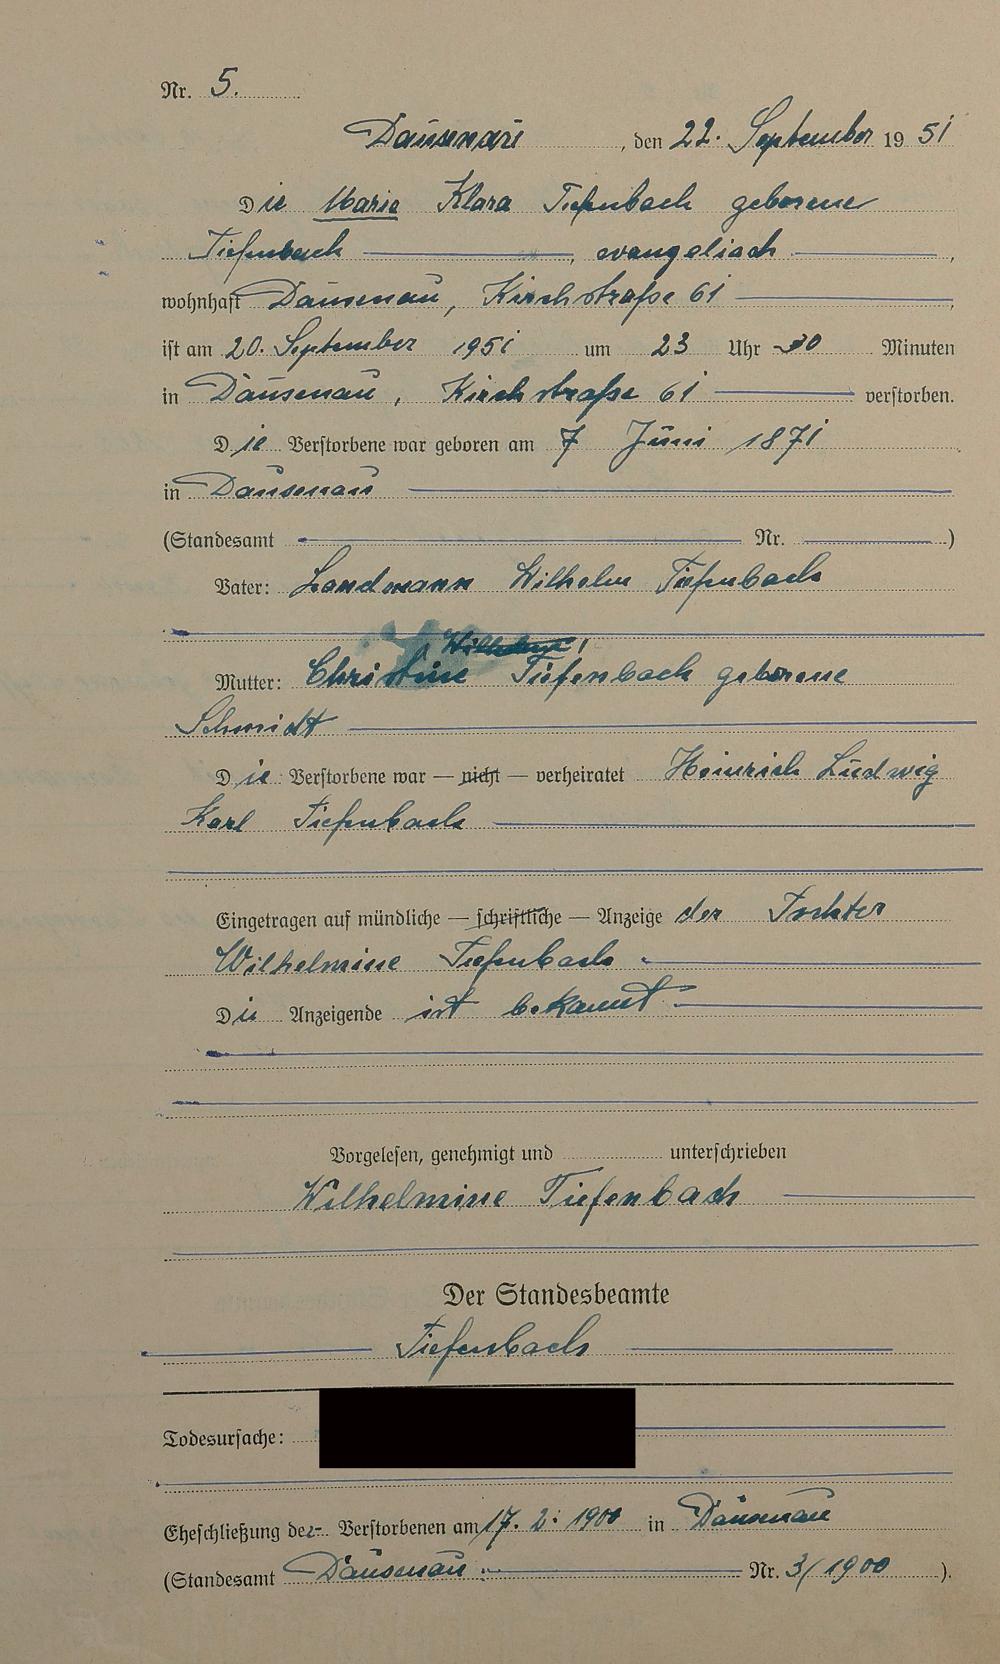 Nr. 5.
Dausenau, den 22. September 1951
Die Marie Klara Tiefenbach geborene
Tiefenbach, evangelisch,
wohnhaft Dausenau, Kirchstraße 61
ist am 20. September 1951 um 23 Uhr 30 Minuten
in Dausenau, Kirchstraße 61 verstorben.
Die Verstorbene war geboren am 7 Juni 1871
in Dausenau
(Standesamt Nr. )
Vater: Landmann Wilhelm Tiefenbach
Mutter: Christine Tiefenbach geborene
Schmidt
Die Verstorbene war — nicht — verheiratet Heinrich Ludwig
Karl Tiefenbach
Eingetragen auf mündliche — schriftliche — Anzeige der Tochter
Wilhelmine Tiefenbach
Die Anzeigende ist bekannt
Vorgelesen, genehmigt und unterschrieben
Wilhelmine Tiefenbach
Der Standesbeamte
Tiefenbach
Todesursache:
Eheschließung der Verstorbenen am 17. 2. 1900 in Dausenau
(Standesamt Dausenau Nr. 3/1900).